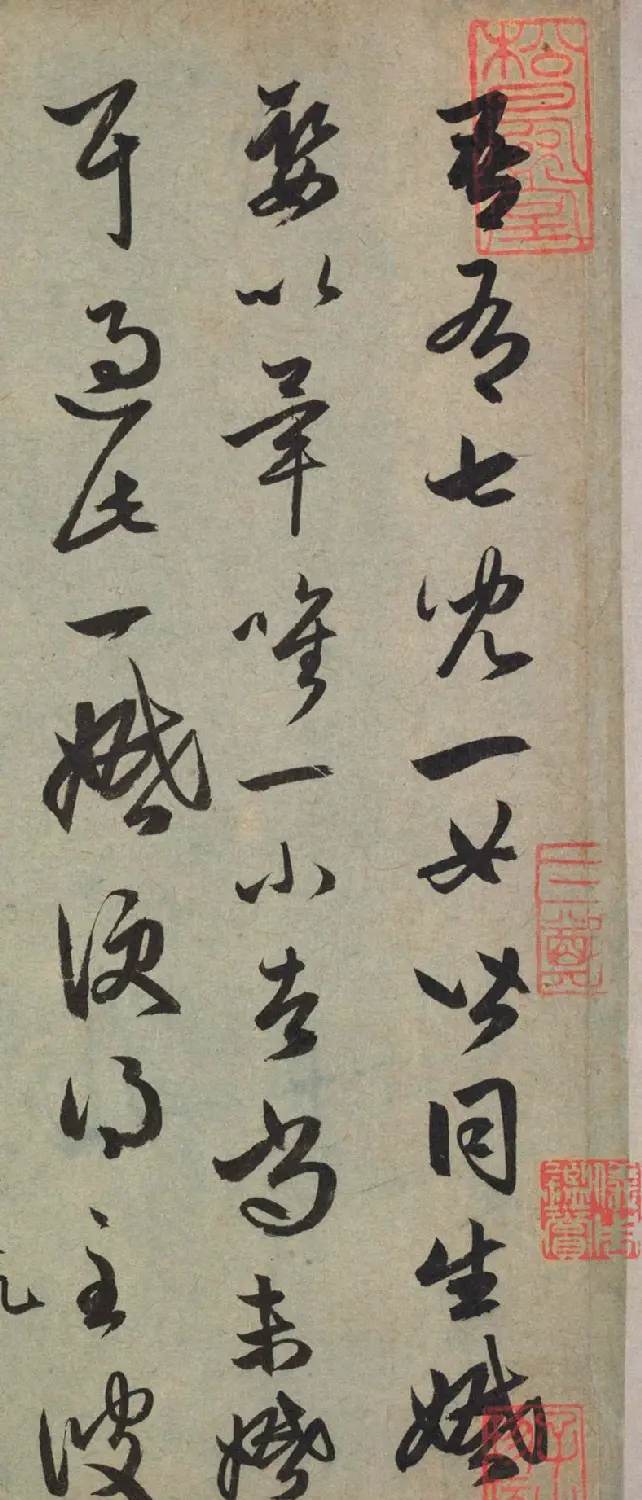 吾有七兒一女皆同生婚
娶以畢唯一小者尚未婚
耳過此一婚便得至彼